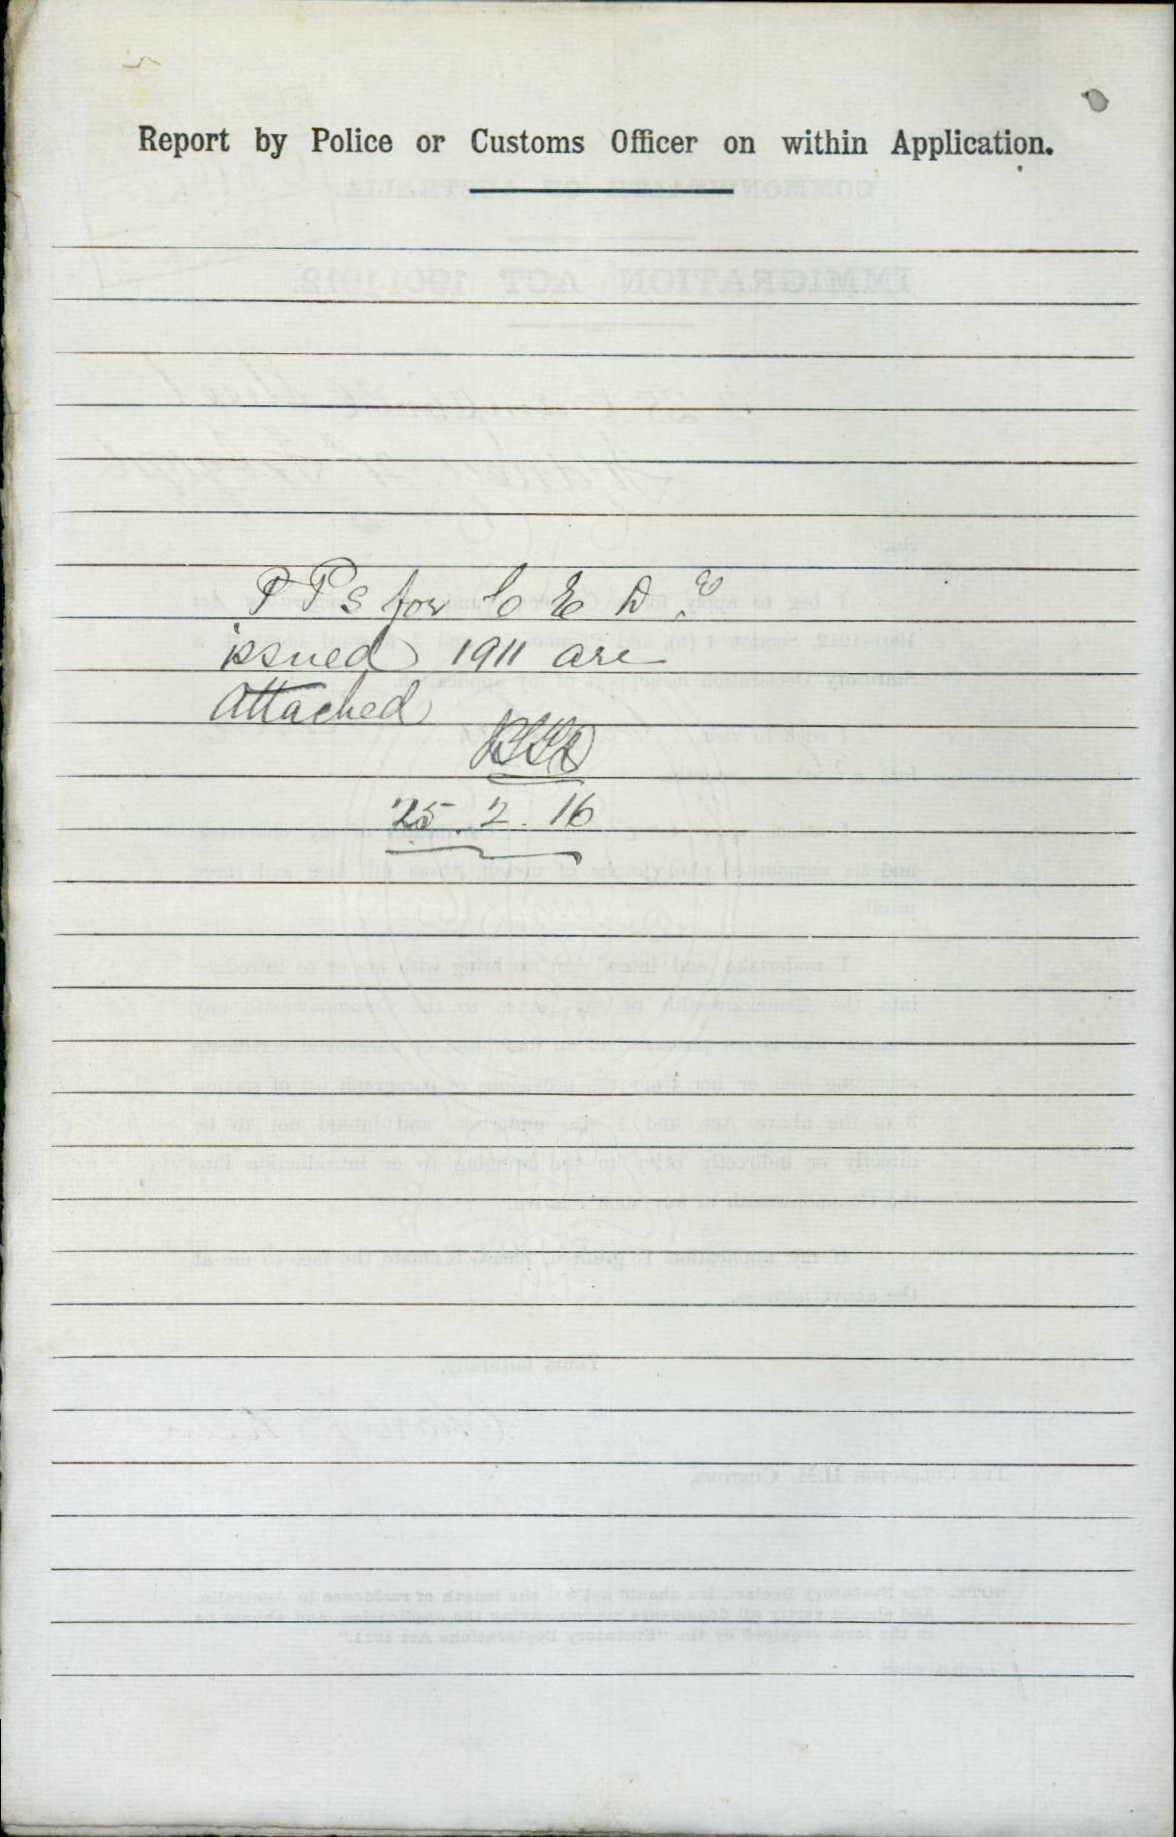 Report by Police or Customs Officer on within Application.
P Ps for C E D T
issued 1911 are
attached
25.2.16